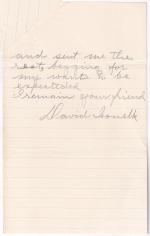 and sent me the
rest, begging for
my wants to be
expected
I remain your friend
David